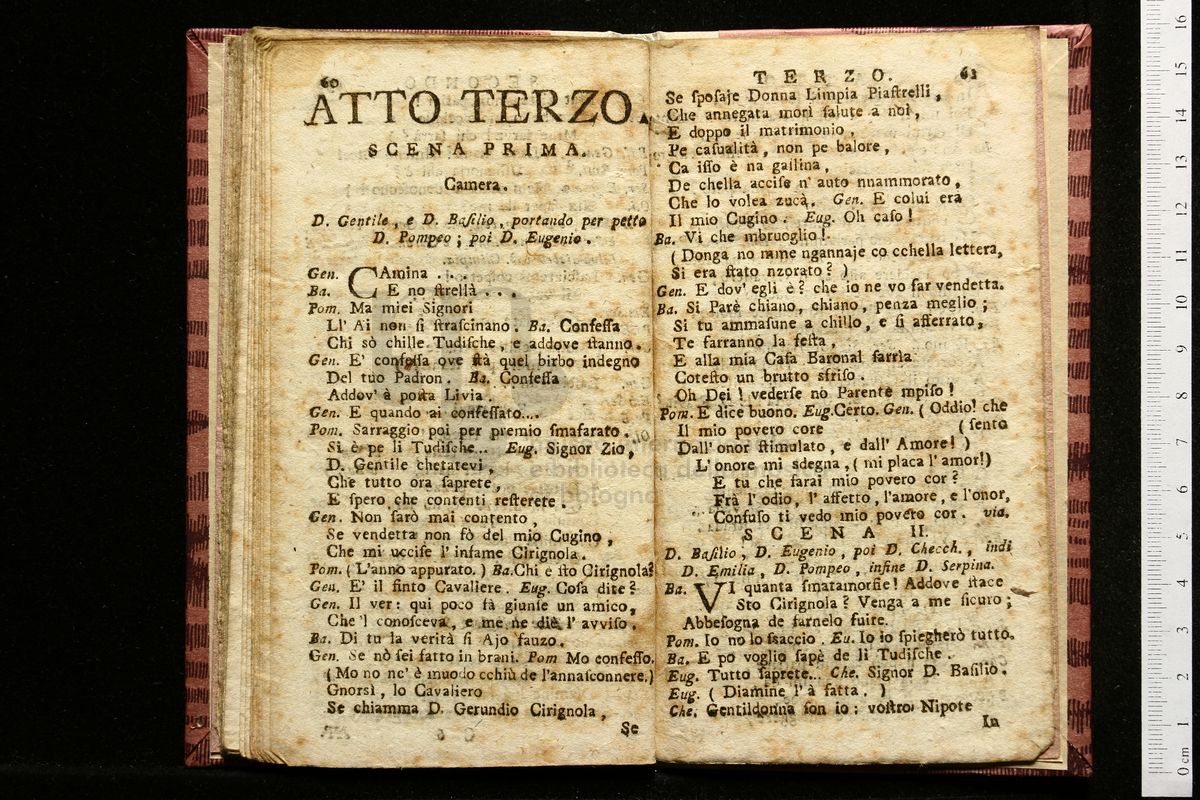 60
ATTO TERZO.
SCENA PRIMA.
Camera.
D. Gentile, e D. Baſilio, portando per petto
D. Pompeo; poi D. Eugenio.
Gen. CAmina ...
Ba. E no ſtrellà ...
Pom. Ma miei Signori
Ll' Ai non ſi ſtraſcinano. Ba. Confeſſa
Chi sò chille Tudiſche, e addove ſtanno.
Gen. E' confeſſa ove ſtà quel birbo indegno
Del tuo Padron. Ba. Confeſſa
Addov' à poſta Livia.
Gen. E quando ai confeſſato....
Pom. Sarraggio poi per premio ſmafarato.
Si è pe li Tudiſche... Eug. Signor Zio,
D. Gentile chetatevi,
Che tutto ora ſaprete,
E ſpero che contenti reſterete.
Gen. Non ſarò mai contento,
Se vendetta non fò del mio Cugino,
Che mi ucciſe l' infame Cirignola.
Pom. (L'anno appurato.) Ba. Chi è ſto Cirignola?
Gen. E' il finto Cavaliere. Eug. Coſa dite?
Gen. Il ver: qui poco fà giunſe un amico,
Che 'l conoſceva, e me ne diè l' avviſo.
Ba. Di tu la verità ſi Ajo fauzo.
Gen. Se nò ſei fatto in brani. Pom Mo confeſſo.
(Mo no nc' è muodo cchiù de l'annaſconnere.)
Gnorsì, lo Cavaliero
Se chiamma D. Gerundio Cirignola,
Se
TERZO. 61
Se ſpoſaje Donna Limpia Piaſtrelli,
Che annegata morì ſalute a noi,
E doppo il matrimonio,
Pe caſualità, non pe balore,
Ca iſſo è na gallina,
De chella acciſe n' auto nnammorato,
Che lo volea zucà. Gen. E colui era
Il mio Cugino. Eug. Oh caſo!
Ba. Vi che mbruoglio!
(Donga no mme ngannaje co cchella lettera,
Si era ſtato nzorato?)
Gen. E dov' egli è? che io ne vo far vendetta.
Ba. Si Parè chiano, chiano, penza meglio;
Si tu ammaſune a chillo, e ſi afferrato,
Te farranno la feſta,
E alla mia Caſa Baronal farria
Coteſto un brutto sfriſo.
Oh Dei! vederſe no Parente mpiſo!
Pom. E dice buono. Eug. Certo. Gen. (Oddio! che
Il mio povero core (ſento
Dall' onor ſtimulato, e dall' Amore!)
L' onore mi sdegna, (mi placa l' amor!)
E tu che farai mio povero cor?
Frà l' odio, l' affetto, l'amore, e l'onor,
Confuſo ti vedo mio povero cor. via.
SCENA II.
D. Baſilio, D. Eugenio, poi D. Checch., indi
D. Emilia, D. Pompeo, infine D. Serpina.
Ba. VI quanta ſmatamorfie! Addove ſtace
Sto Cirignola? Venga a me ſicuro;
Abbeſogna de farnelo fuire.
Pom. Io no lo ſſaccio. Eu. Io io ſpiegherò tutto.
Ba. E po voglio ſapè de li Tudiſche.
Eug. Tutto ſaprete... Che. Signor D. Baſilio.
Eug. (Diamine l' à fatta.)
Che. Gentildonna ſon io: voſtro Nipote
In